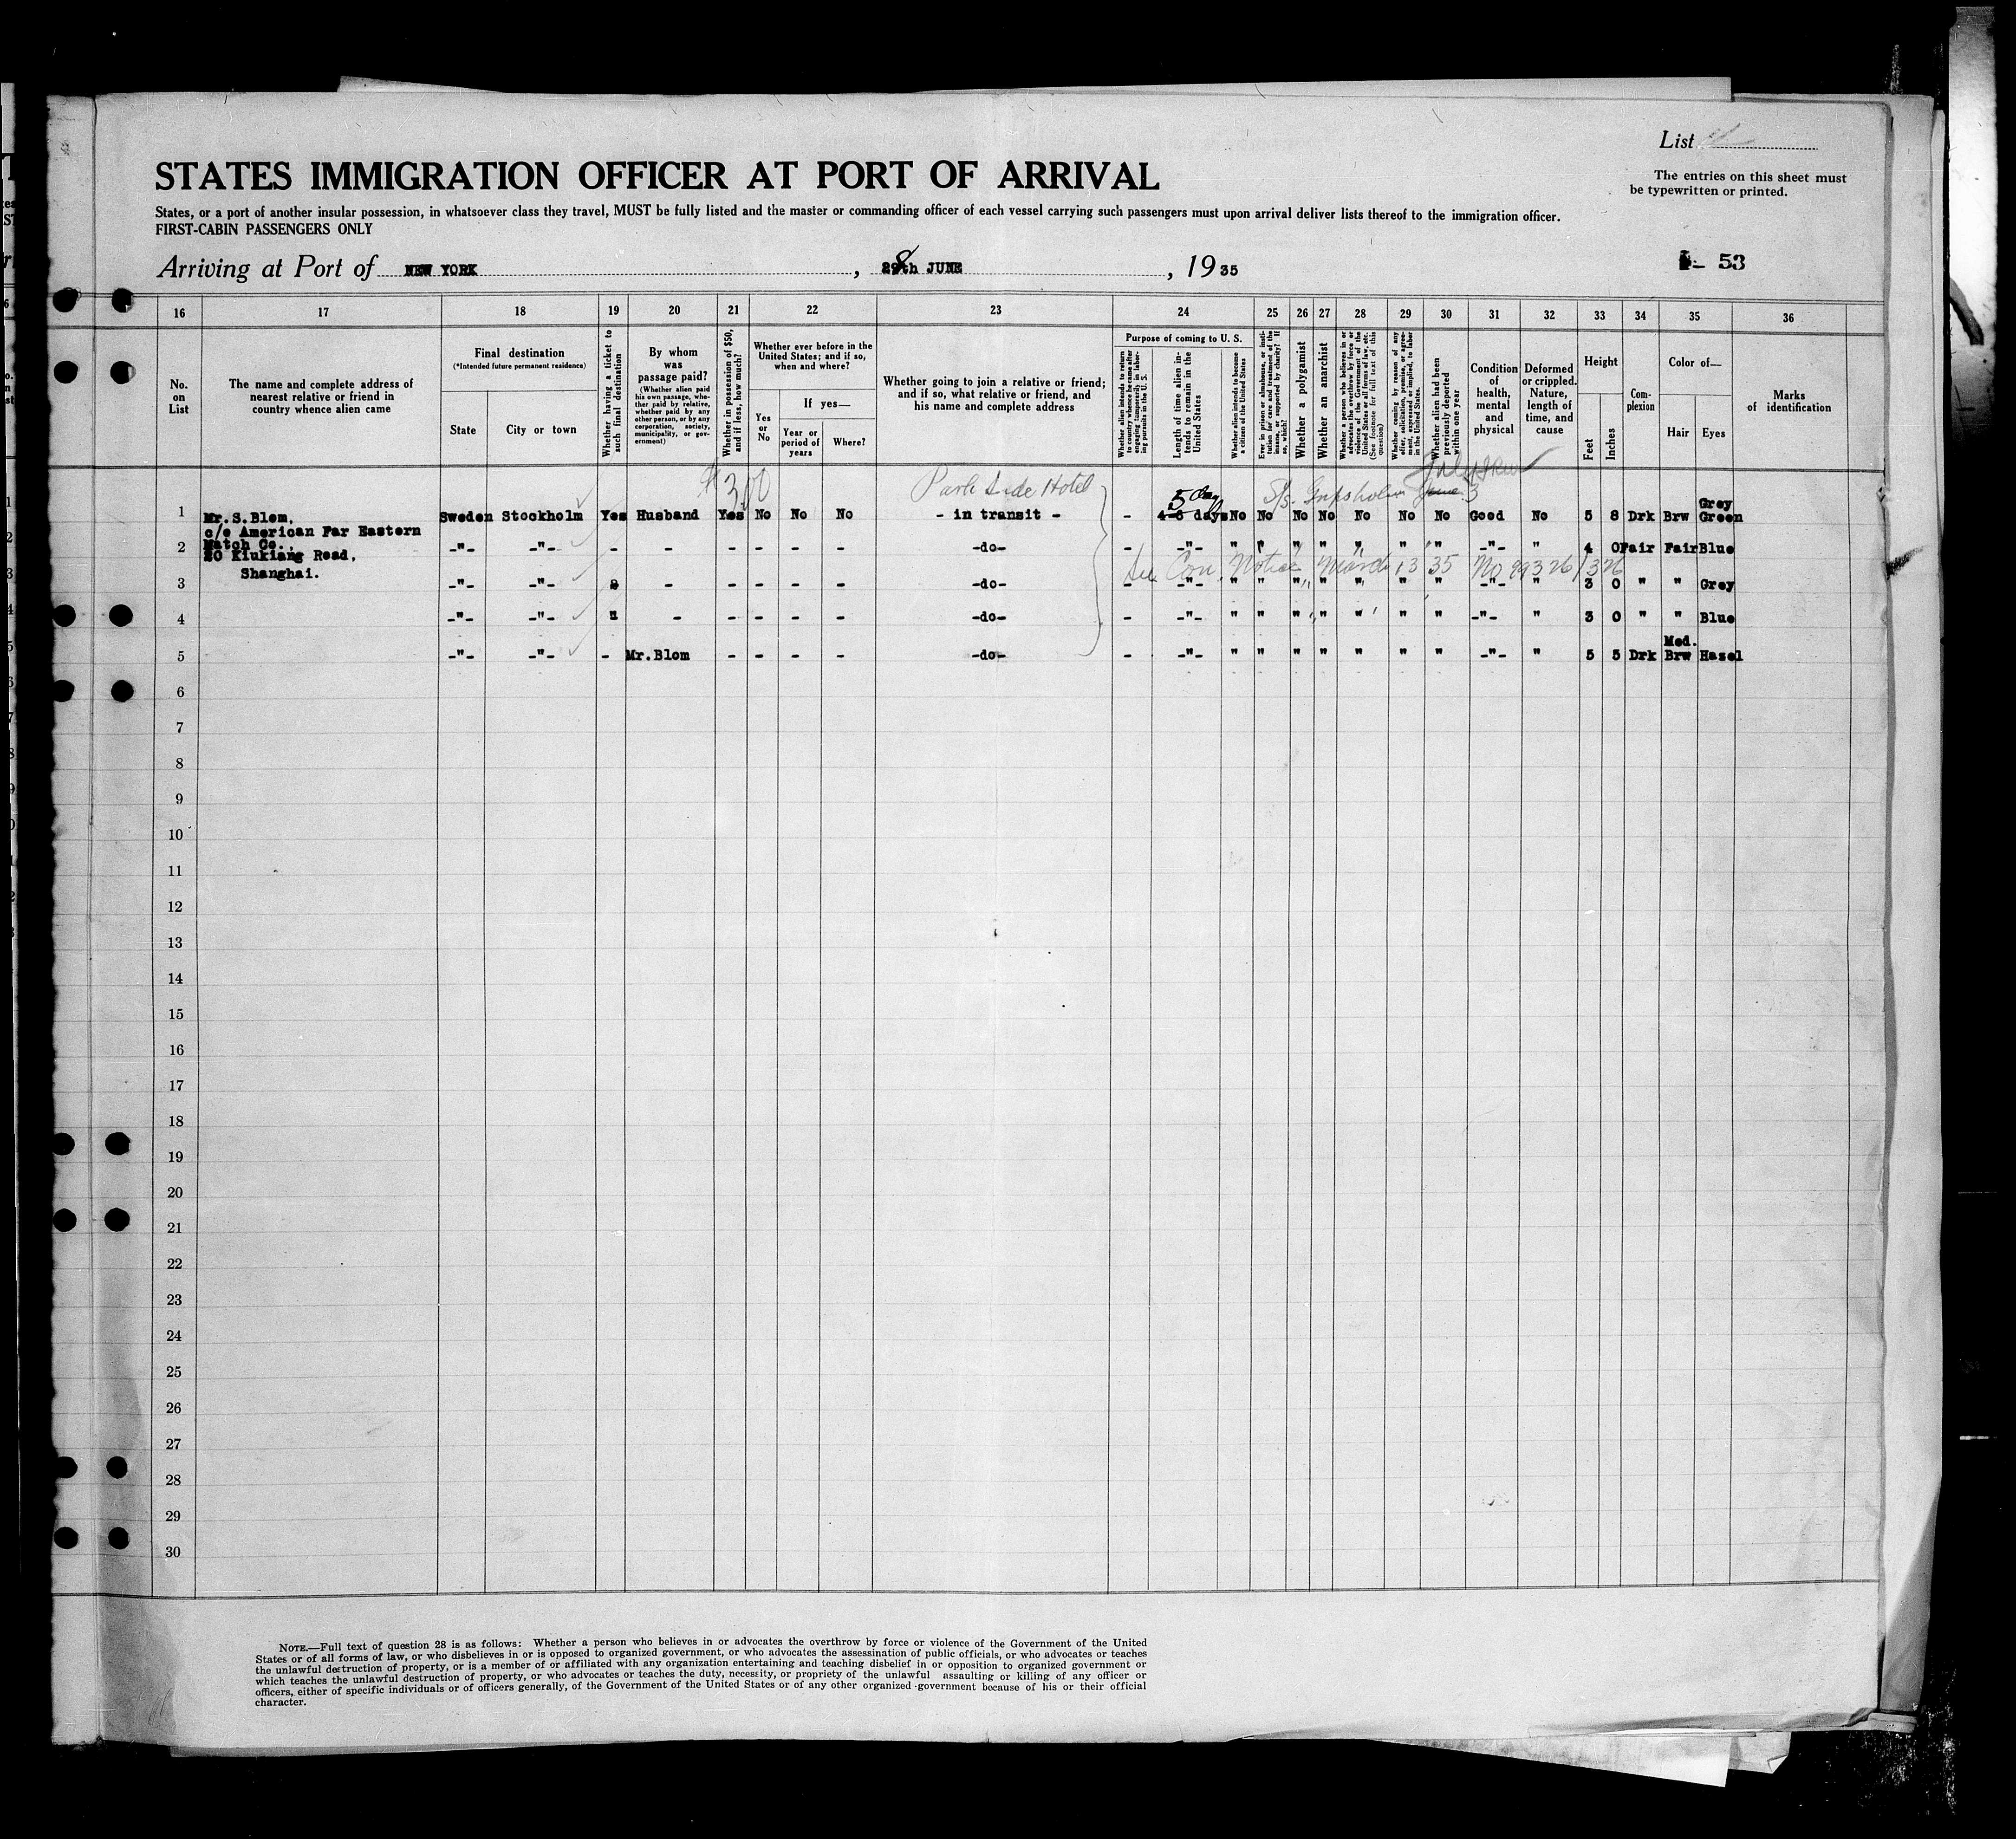 List
The entries on this sheet must
be typewritten or printed.
STATES IMMIGRATION OFFICER AT PORT OF ARRIVAL
States, or a port of another insular possession, in whatsoever class they travel, MUST be fully listed and the master or commanding officer of each vessel carrying such passengers must upon arrival deliver lists thereof to the immigration officer.
FIRST-CABIN PASSENGERS ONLY
Arriving at Port of NEW YORK , 28th JUNE , 1935
53
16 17 18 19 20 21 22 23 24 25 26 27 28 29 30 31 32 33 34 35 36
No. on List
The name and complete address of nearest relative or friend in country whence alien came
Final destination
(*Intended future permanent residence)
State
City or town
Whether having a ticket to such final destination
By whom was passage paid?
(Whether alien paid his own passage, whether paid by relative, whether paid by any other person, or by any corporation, society, municipality, or government)
Whether in possession of $50, and if less, how much?
Whether ever before in the United States; and if so, when and where?
Yes or No
If yes—
Year or period of years
Where?
Whether going to join a relative or friend; and if so, what relative or friend, and his name and complete address
Purpose of coming to U. S.
Whether alien intends to return to country whence he came after engaging temporarily in laboring pursuits in the U. S.
Length of time alien intends to remain in the United States
Whether alien intends to become a citizen of the United States
Ever in prison or almshouse, or institution for care and treatment of the insane, or supported by charity? If so, which?
Whether a polygamist
Whether an anarchist
Whether a person who believes in or advocates the overthrow by force or violence of the Government of the United States or all forms of law, etc. (See footnote for full text of this question)
Whether coming by reason of any offer, solicitation, promise, or agreement, expressed or implied, to labor in the United States.
Whether alien had been previously deported within one year
Condition of health, mental and physical
Deformed or crippled. Nature, length of time, and cause
Height
Feet
Inches
Complexion
Color of—
Hair
Eyes
Marks of identification
$300 Park Side Hotel 5 days S/S. Gripsholm June 3
1 Mr.S.Blom, Sweden Stockholm Yes Husband Yes No No No - in transit - - 4-5 days No No No No No No No Good No 5 8 Drk Brw Grey Green
c/o American Far Eastern
2 Match Co., -"- -"- - - - - - - -do- - -"- " " " " " " " -"- " 4 0 Fair Fair Blue
20 Kiukiang Road,
See Con. Notice March 13 35 No 99326/326
Shanghai.
3 -"- -"- - - - - - -do- - -"- " " " " " " " -"- " 3 0 " " Grey
4 -"- -"- " - - - - - -do- - -"- " " " " " " " -"- " 3 0 " " Blue
5 -"- -"- - Mr.Blom - - - - -do- - -"- " " " " " " " -"- " 5 5 Drk Med. Brw Hazel
6
7
8
9
10
11
12
13
14
15
16
17
18
19
20
21
22
23
24
25
26
27
28
29
30
NOTE.—Full text of question 28 is as follows: Whether a person who believes in or advocates the overthrow by force or violence of the Government of the United
States or of all forms of law, or who disbelieves in or is opposed to organized government, or who advocates the assassination of public officials, or who advocates or teaches
the unlawful destruction of property, or is a member of or affiliated with any organization entertaining and teaching disbelief in or opposition to organized government or
which teaches the unlawful destruction of property, or who advocates or teaches the duty, necessity, or propriety of the unlawful assaulting or killing of any officer or
officers, either of specific individuals or of officers generally, of the Government of the United States or of any other organized government because of his or their official
character.